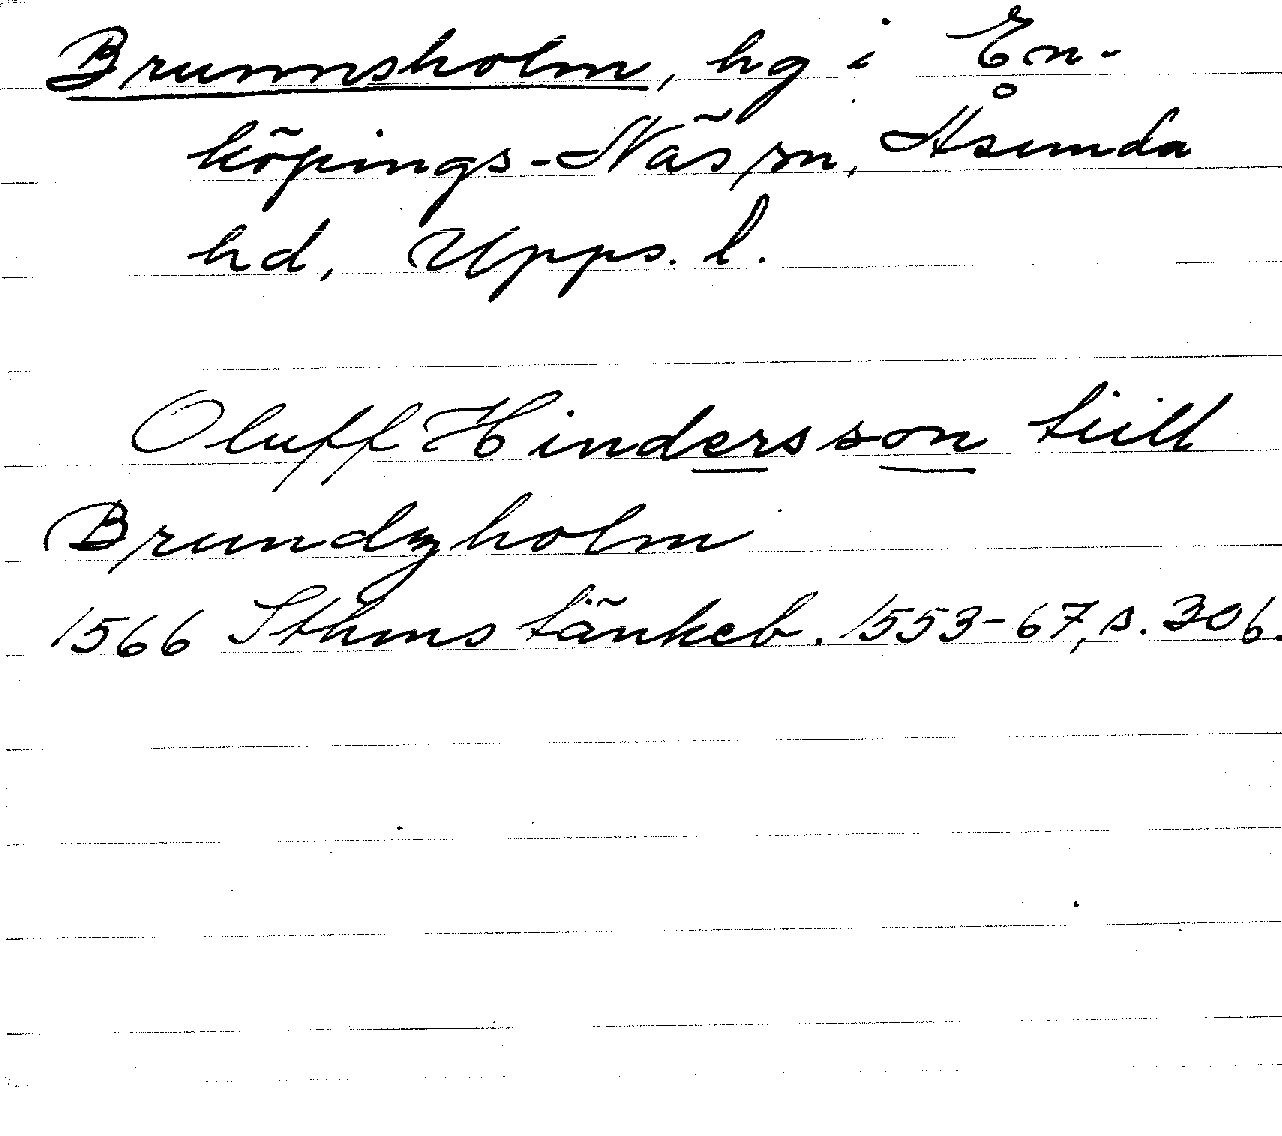 Brunnsholm, hg i En-
köpings-Näs sn, Åsunda
hd, Upps. l.
Oluff Hindersson tiill
Brundzholm
1566 Sthms tänkeb. 1553-67, s. 306.